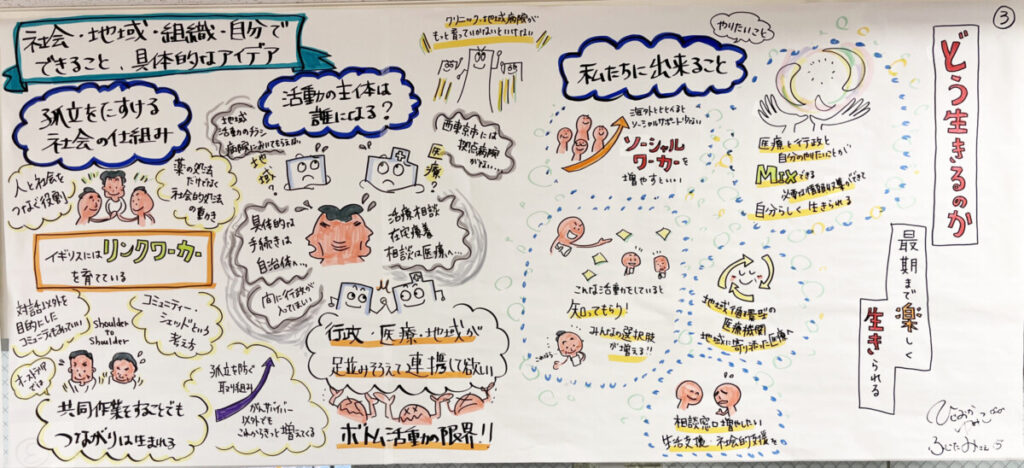 社会・地域・組織・自分で
できること、具体的なアイデア
孤立をたすける
社会の仕組み
人と社会を
つなぐ役割
薬の処方
だけでなく
社会的処方
の動き
イギリスには リンクワーカー
を育てている
対話以外を
目的とした
コミュニティもあっていい
Shoulder
to
Shoulder
コミュニティー・
シェッドという
考え方
共同作業をすることでも
つながりは生まれる
孤立を防ぐ
取り組み
がんサバイバー
以外でも
これからもっと増えてくる
活動の主体は
誰になる?
地域
活動のチラシ
病院においてもらえない
地域?
医療?
西東京市には
拠点病院
がない…
具体的な
手続きは
自治体へ…
治療相談
在宅療養
相談は医療へ…
間に行政が
入ってほしい
行政・医療・地域が
足並みそろえて連携して欲しい
ボトム活動の限界!!
クリニック・地域病院が
もっと育っていかないといけない
私たちに出来ること
やりたいこと
海外とくらべると
ソーシャルサポート少ない
ソーシャル
ワーカーを
増やすといい
こんな活動をしていると
知ってもらう!
みんなの選択肢
が増える!!
医療と行政と
自分のやりたいことが
Mixできる
必要な情報収集ができて
自分らしく生きられる
地域循環型の
医療機関
地域に寄り添った医療へ
相談窓口増やしたい
生活支援・社会的支援を
③
どう生きるのか
最期まで楽しく
生きられる